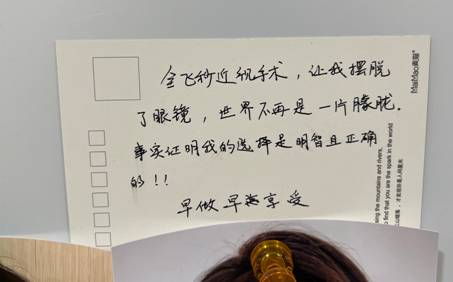 全飞秒近视手术，让我摆脱
了眼镜，世界不再是一片朦胧.
事实证明我的选择是明智且正确
的!!
早做早享受
MaiMao賣貓
ing the mountains and rivers,
find that you are the spark in the world